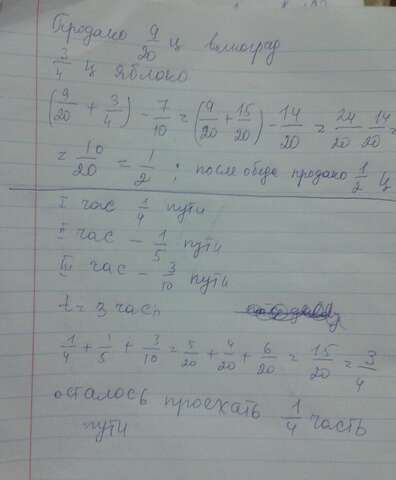 Продано 9/20 ц виноград
3/4 ц яблоко
(9/20 + 3/4) - 7/10 = (9/20 + 15/20) - 14/20 = 24/20 14/20 =
= 10/20 = 1/2 ; после обеда продано 1/2 ц
I час 1/4 пути
II час - 1/5 пути
III час - 3/10 пути
t = 3 часа
1/4 + 1/5 + 3/10 = 5/20 + 4/20 + 6/20 = 15/20 = 3/4
осталось проехать 1/4 часть
пути